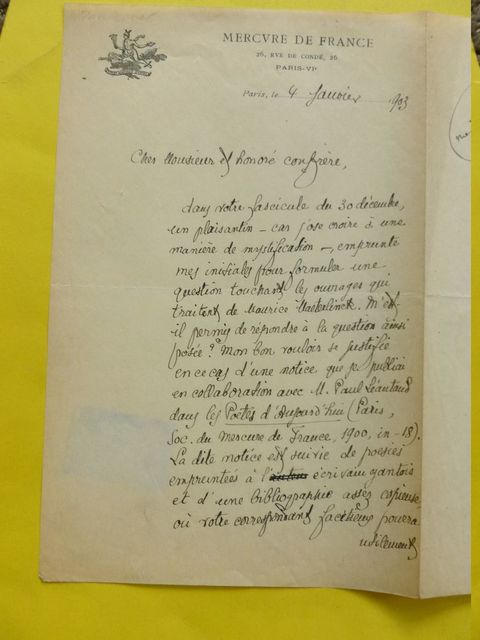 MERCVRE DE FRANCE
26, RVE DE CONDÉ, 26
PARIS-VIe
Paris, le 4 Janvier 1903
Cher Monsieur et honoré confrère,
dans votre fascicule du 30 décembre,
un plaisantin – car j'ose croire à une
manière de mystification –, emprunte
mes initiales pour formuler une
question touchant les ouvrages qui
traitent de Maurice Maeterlinck. M'est
il permis de répondre à la question ainsi
posée ? Mon bon vouloir se justifie
en ce cas d'une notice que je publiai
en collaboration avec M. Paul Léautaud
dans les Poètes d'Aujourd'hui (Paris,
Soc. du Mercure de France, 1900, in-18).
La dite notice est suivie de poésies
empruntées à l'auteur écrivain gantois
et d'une bibliographie assez copieuse
où votre correspondant facétieux pourra
utilement